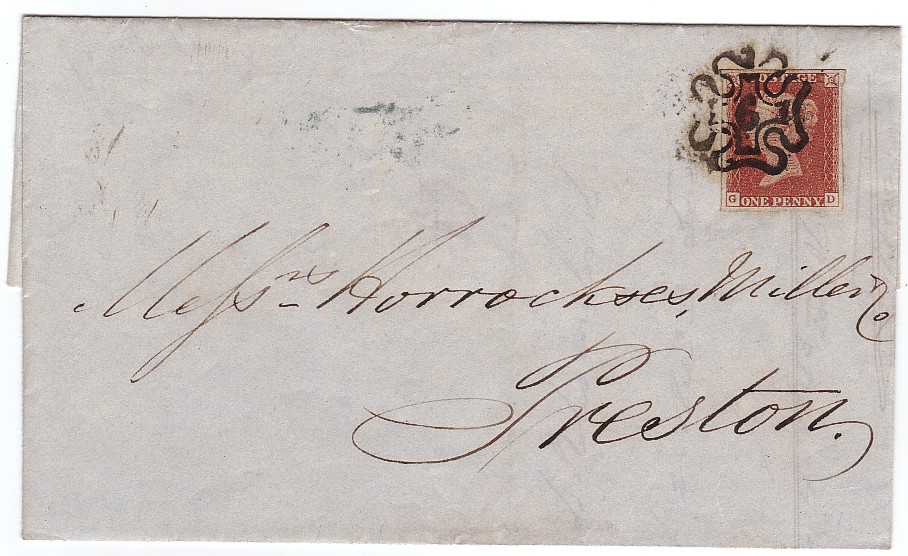 POSTAGE
6
G ONE PENNY D
Messrs Horrockses, Miller & Co
Preston.